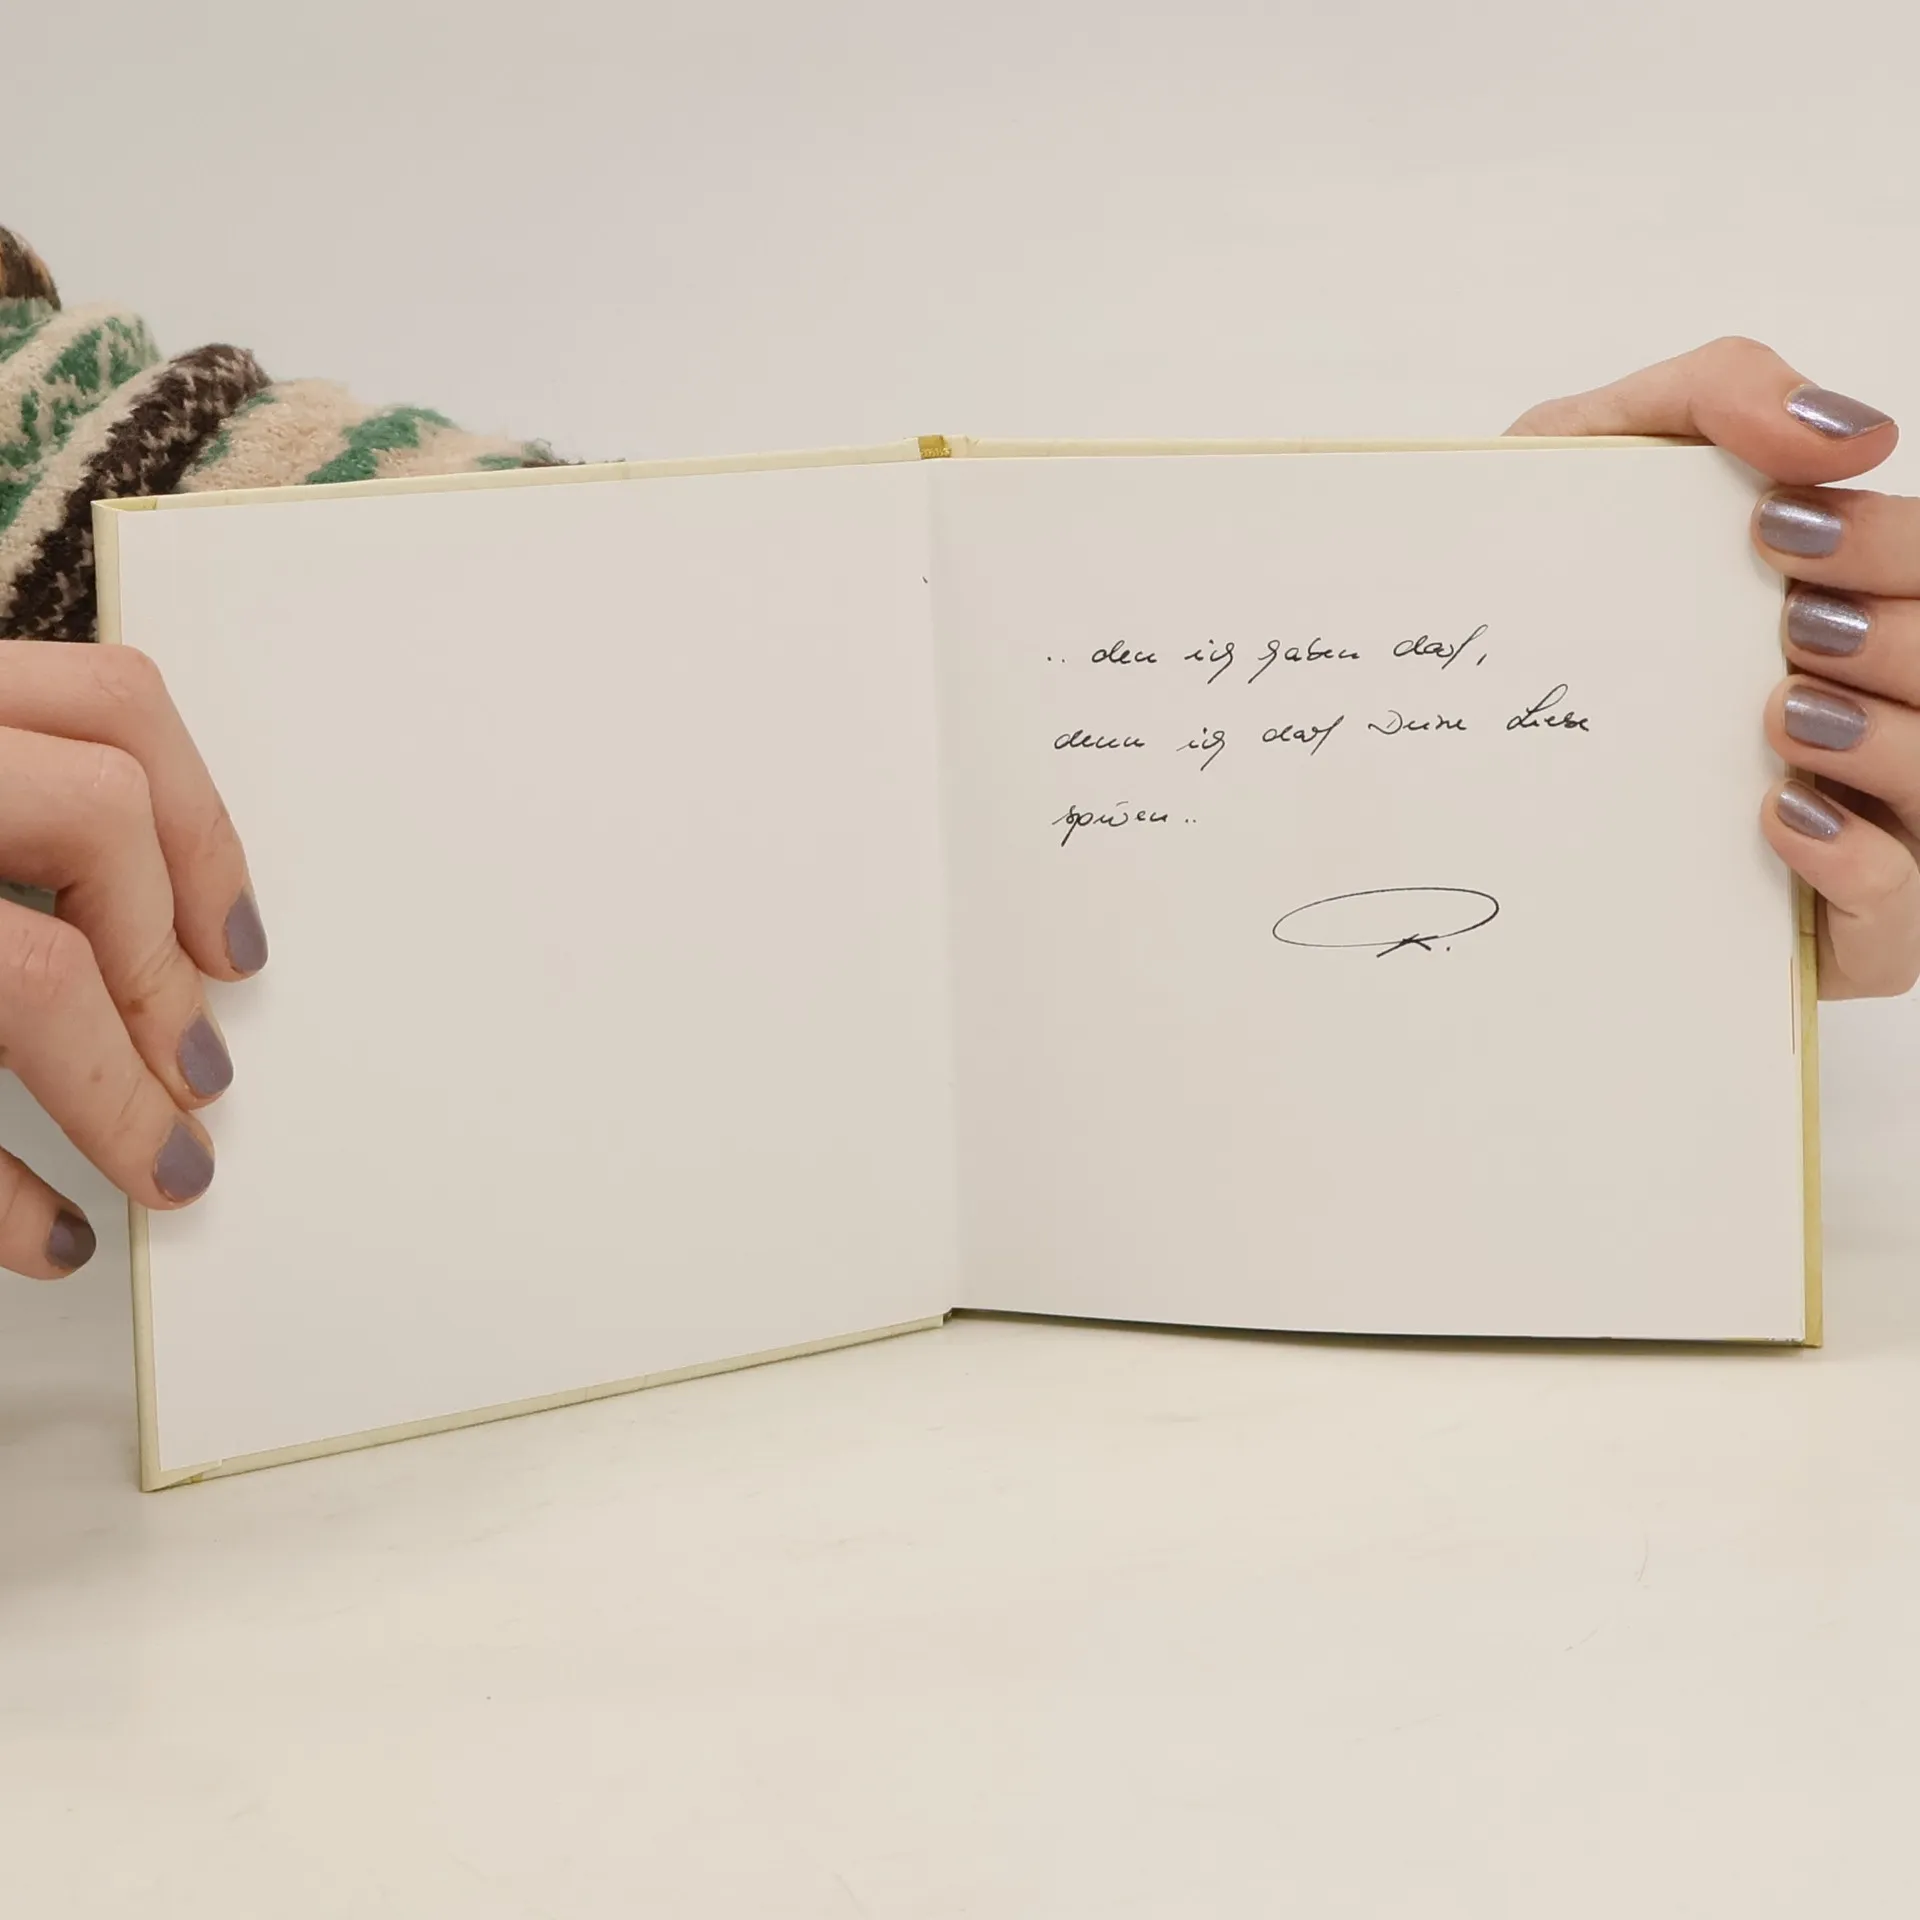 .. den ich haben darf,
denn ich darf Deine Liebe
spüren..
R.